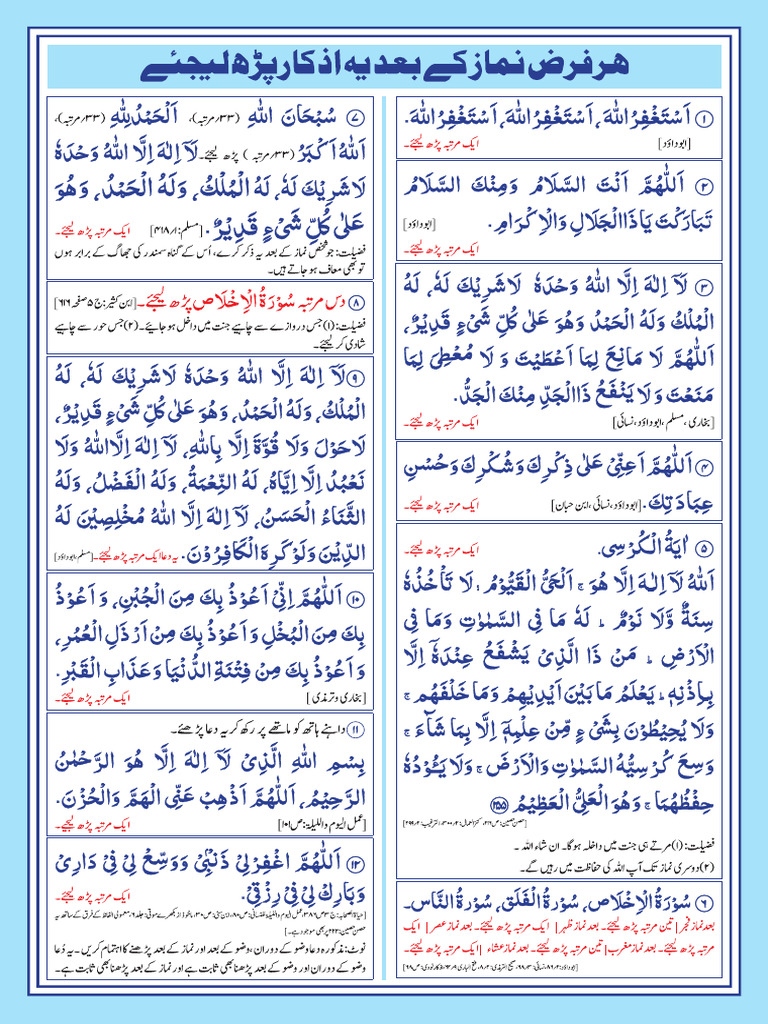 ہر فرض نماز کے بعد یہ اذکار پڑھ لیجئے
۱ اَسْتَغْفِرُ اللهَ، اَسْتَغْفِرُ اللهَ، اَسْتَغْفِرُ اللهَ.
[ابوداؤد] ایک مرتبہ پڑھ لیجئے۔
۲ اَللّٰهُمَّ اَنْتَ السَّلَامُ وَمِنْكَ السَّلَامُ
تَبَارَكْتَ يَاذَاالْجَلَالِ وَالْاِكْرَامِ. [ابوداؤد]
ایک مرتبہ پڑھ لیجئے۔
۳ لَآ اِلٰهَ اِلَّا اللهُ وَحْدَهٗ لَاشَرِيْكَ لَهٗ، لَهُ
الْمُلْكُ وَلَهُ الْحَمْدُ وَهُوَ عَلٰى كُلِّ شَيْءٍ قَدِيْرٌ،
اَللّٰهُمَّ لَا مَانِعَ لِمَا اَعْطَيْتَ وَ لَا مُعْطِىَ لِمَا
مَنَعْتَ وَلَا يَنْفَعُ ذَاالْجَدِّ مِنْكَ الْجَدُّ.
[بخاری، مسلم، ابوداؤد، نسائی] ایک مرتبہ پڑھ لیجئے۔
۴ اَللّٰهُمَّ اَعِنِّىْ عَلٰى ذِكْرِكَ وَشُكْرِكَ وَحُسْنِ
عِبَادَتِكَ. [ابوداؤد، نسائی، ابن حبان] ایک مرتبہ پڑھ لیجئے۔
۵ اٰيَةُ الْكُرْسِى. ایک مرتبہ پڑھ لیجئے۔
اَللهُ لَآ اِلٰهَ اِلَّا هُوَ ۚ اَلْحَيُّ الْقَيُّوْمُ ۚ لَا تَأْخُذُهٗ
سِنَةٌ وَّلَا نَوْمٌ ؕ لَهٗ مَا فِى السَّمٰوٰتِ وَمَا فِى
الْاَرْضِ ؕ مَنْ ذَا الَّذِىْ يَشْفَعُ عِنْدَهٗٓ اِلَّا
بِاِذْنِهٖ ؕ يَعْلَمُ مَا بَيْنَ اَيْدِيْهِمْ وَمَا خَلْفَهُمْ ۚ
وَلَا يُحِيْطُوْنَ بِشَىْءٍ مِّنْ عِلْمِهٖٓ اِلَّا بِمَا شَآءَ ۚ
وَسِعَ كُرْسِيُّهُ السَّمٰوٰتِ وَالْاَرْضَ ۚ وَلَا يَئُوْدُهٗ
حِفْظُهُمَا ۚ وَهُوَ الْعَلِىُّ الْعَظِيْمُ ۲۵۵
فضیلت: (۱) مرتے ہی جنت میں داخلہ ہوگا۔ ان شاء اللہ۔
(۲) دوسری نماز تک آپ اللہ کی حفاظت میں رہیں گے۔
۶ سُوْرَةُ الْاِخْلَاصِ، سُوْرَةُ الْفَلَقِ، سُوْرَةُ النَّاسِ۔
بعد نماز فجر | تین مرتبہ پڑھ لیجئے۔ بعد نماز ظہر | ایک مرتبہ پڑھ لیجئے۔ بعد نماز عصر | ایک
مرتبہ پڑھ لیجئے۔ بعد نماز مغرب | تین مرتبہ پڑھ لیجئے۔ بعد نماز عشاء | ایک مرتبہ پڑھ لیجئے۔
۷ سُبْحَانَ اللهِ (۳۳ مرتبہ)، اَلْحَمْدُ لِلّٰهِ (۳۳ مرتبہ)،
اَللهُ اَكْبَرُ (۳۳ مرتبہ) پڑھ لیجئے۔ لَآ اِلٰهَ اِلَّا اللهُ وَحْدَهٗ
لَاشَرِيْكَ لَهٗ، لَهُ الْمُلْكُ، وَلَهُ الْحَمْدُ، وَهُوَ
عَلٰى كُلِّ شَيْءٍ قَدِيْرٌ. [مسلم: ۴۱۸/۱] ایک مرتبہ پڑھ لیجئے۔
فضیلت: جو شخص نماز کے بعد یہ ذکر کرے، اُس کے گناہ سمندر کی جھاگ کے برابر ہوں
تو بھی معاف ہو جاتے ہیں۔
۸ دس مرتبہ سُوْرَةُ الْاِخْلَاصِ پڑھ لیجئے۔ [ابن کثیر: ج ۵ صفحہ ۶۱۶]
فضیلت: (۱) جس دروازے سے چاہیے جنت میں داخل ہو جائیے۔ (۲) جس حور سے چاہیے
شادی کر لیجئے۔
۹ لَآ اِلٰهَ اِلَّا اللهُ وَحْدَهٗ لَاشَرِيْكَ لَهٗ، لَهُ
الْمُلْكُ، وَلَهُ الْحَمْدُ، وَهُوَ عَلٰى كُلِّ شَيْءٍ قَدِيْرٌ،
لَاحَوْلَ وَلَا قُوَّةَ اِلَّا بِاللهِ، لَآ اِلٰهَ اِلَّااللهُ وَلَا
نَعْبُدُ اِلَّا اِيَّاهُ، لَهُ النِّعْمَةُ، وَلَهُ الْفَضْلُ، وَلَهُ
الثَّنَاءُ الْحَسَنُ، لَآ اِلٰهَ اِلَّا اللهُ مُخْلِصِيْنَ لَهُ
الدِّيْنَ وَلَوْ كَرِهَ الْكَافِرُوْنَ. یہ دعا ایک مرتبہ پڑھ لیجئے۔ [مسلم، ابوداؤد]
۱۰ اَللّٰهُمَّ اِنِّىْ اَعُوْذُ بِكَ مِنَ الْجُبْنِ، وَ اَعُوْذُ
بِكَ مِنَ الْبُخْلِ وَ اَعُوْذُ بِكَ مِنْ اَرْذَلِ الْعُمُرِ،
وَ اَعُوْذُ بِكَ مِنْ فِتْنَةِ الدُّنْيَا وَعَذَابِ الْقَبْرِ.
[بخاری و ترمذی] ایک مرتبہ پڑھ لیجئے۔
۱۱ داہنے ہاتھ کو ماتھے پر رکھ کر یہ دعا پڑھئے۔
بِسْمِ اللهِ الَّذِىْ لَآ اِلٰهَ اِلَّا هُوَ الرَّحْمٰنُ
الرَّحِيْمُ، اَللّٰهُمَّ اَذْهِبْ عَنِّى الْهَمَّ وَالْحُزْنَ.
[عمل الیوم واللیلۃ: ص ۱۰۱] ایک مرتبہ پڑھ لیجئے۔
۱۲ اَللّٰهُمَّ اغْفِرْ لِىْ ذَنْبِىْ وَ وَسِّعْ لِىْ فِىْ دَارِىْ
وَبَارِكْ لِىْ فِىْ رِزْقِىْ. ایک مرتبہ پڑھ لیجئے۔
نوٹ: مذکورہ دعا وضو کے دوران، وضو کے بعد اور نماز کے بعد پڑھنے کا اہتمام کریں۔ یہ دُعا
وضو کے دوران اور وضو کے بعد پڑھنا بھی ثابت ہے اور نماز کے بعد پڑھنا بھی ثابت ہے۔